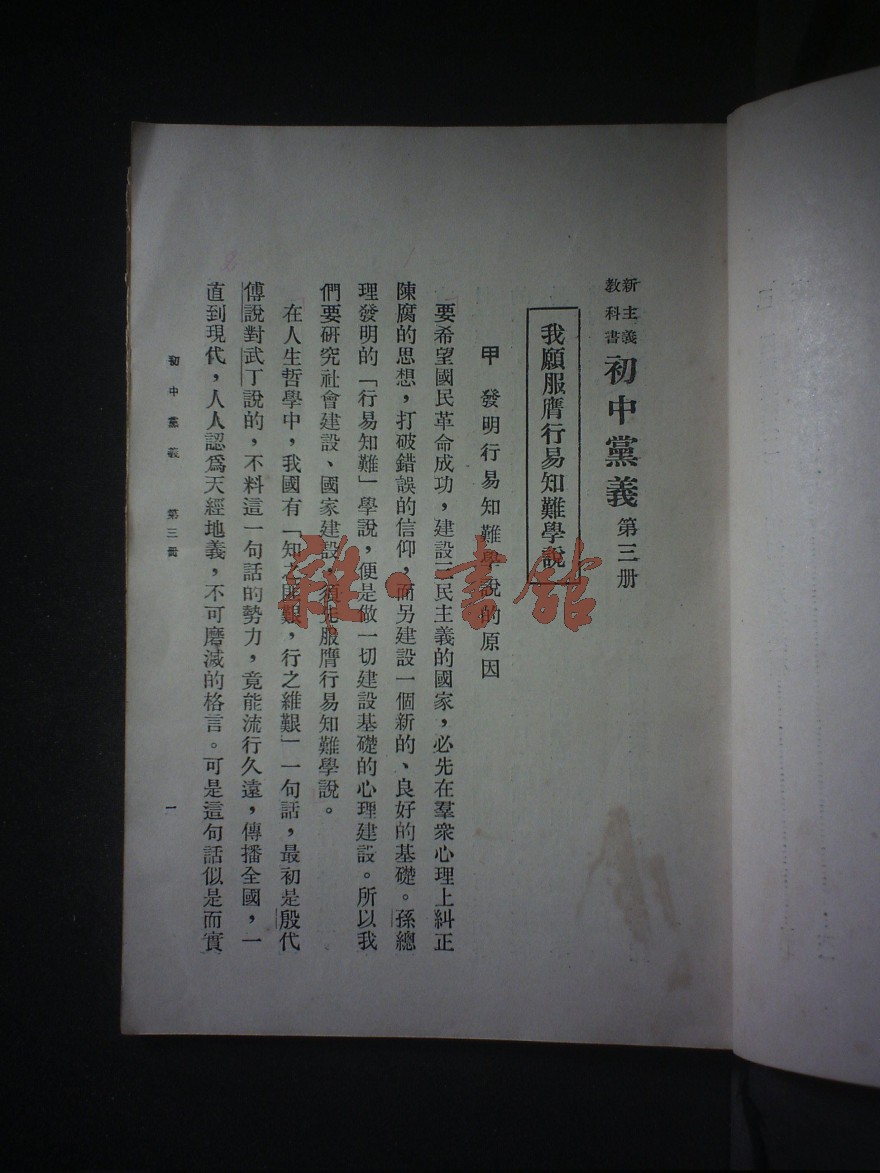 新主義教科書 初中黨義 第三册
我願服膺行易知難學說
甲 發明行易知難學說的原因
要希望國民革命成功，建設三民主義的國家，必先在羣衆心理上糾正
陳腐的思想，打破錯誤的信仰，而另建設一個新的、良好的基礎。孫總
理發明的「行易知難」學說，便是做一切建設基礎的心理建設。所以我
們要研究社會建設、國家建設，須先服膺行易知難學說。
在人生哲學中，我國有「知之匪艱，行之維艱」一句話，最初是殷代
傅說對武丁說的，不料這一句話的勢力，竟能流行久遠，傳播全國，一
直到現代，人人認爲天經地義，不可磨滅的格言。可是這句話似是而實
初中黨義 第三冊 一
雜·書館